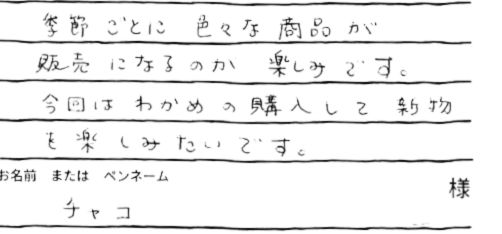 季節ごとに 色々な 商品が
販売になるのか 楽しみです。
今回はわかめの購入して 新物
を楽しみたいです。
お名前 または ペンネーム
様
チャコ